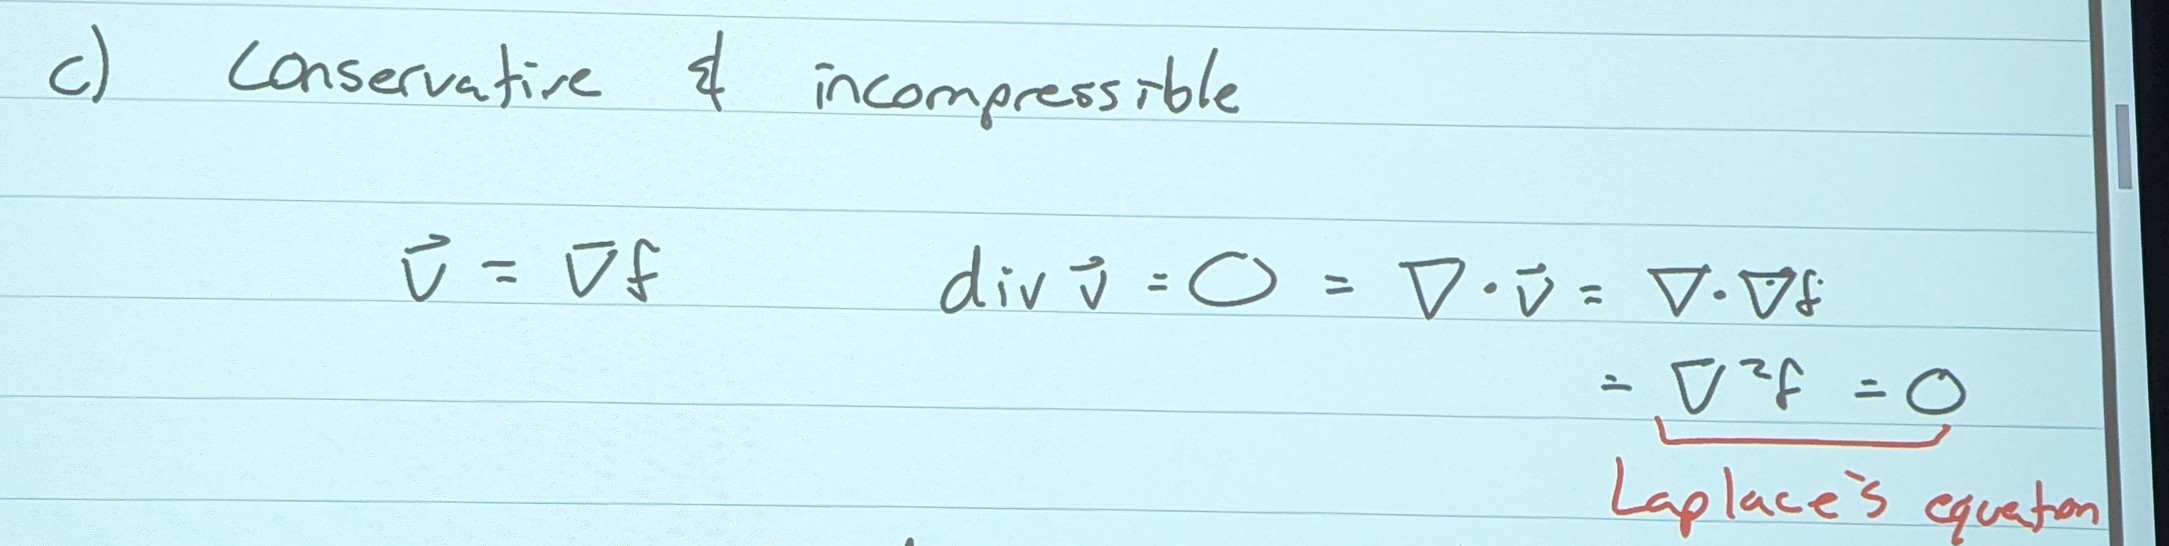 c) Conservative & incompressible
v⃗ = ∇f div v⃗ = 0 = ∇·v⃗ = ∇·∇f
= ∇²f = 0
Laplace's equation